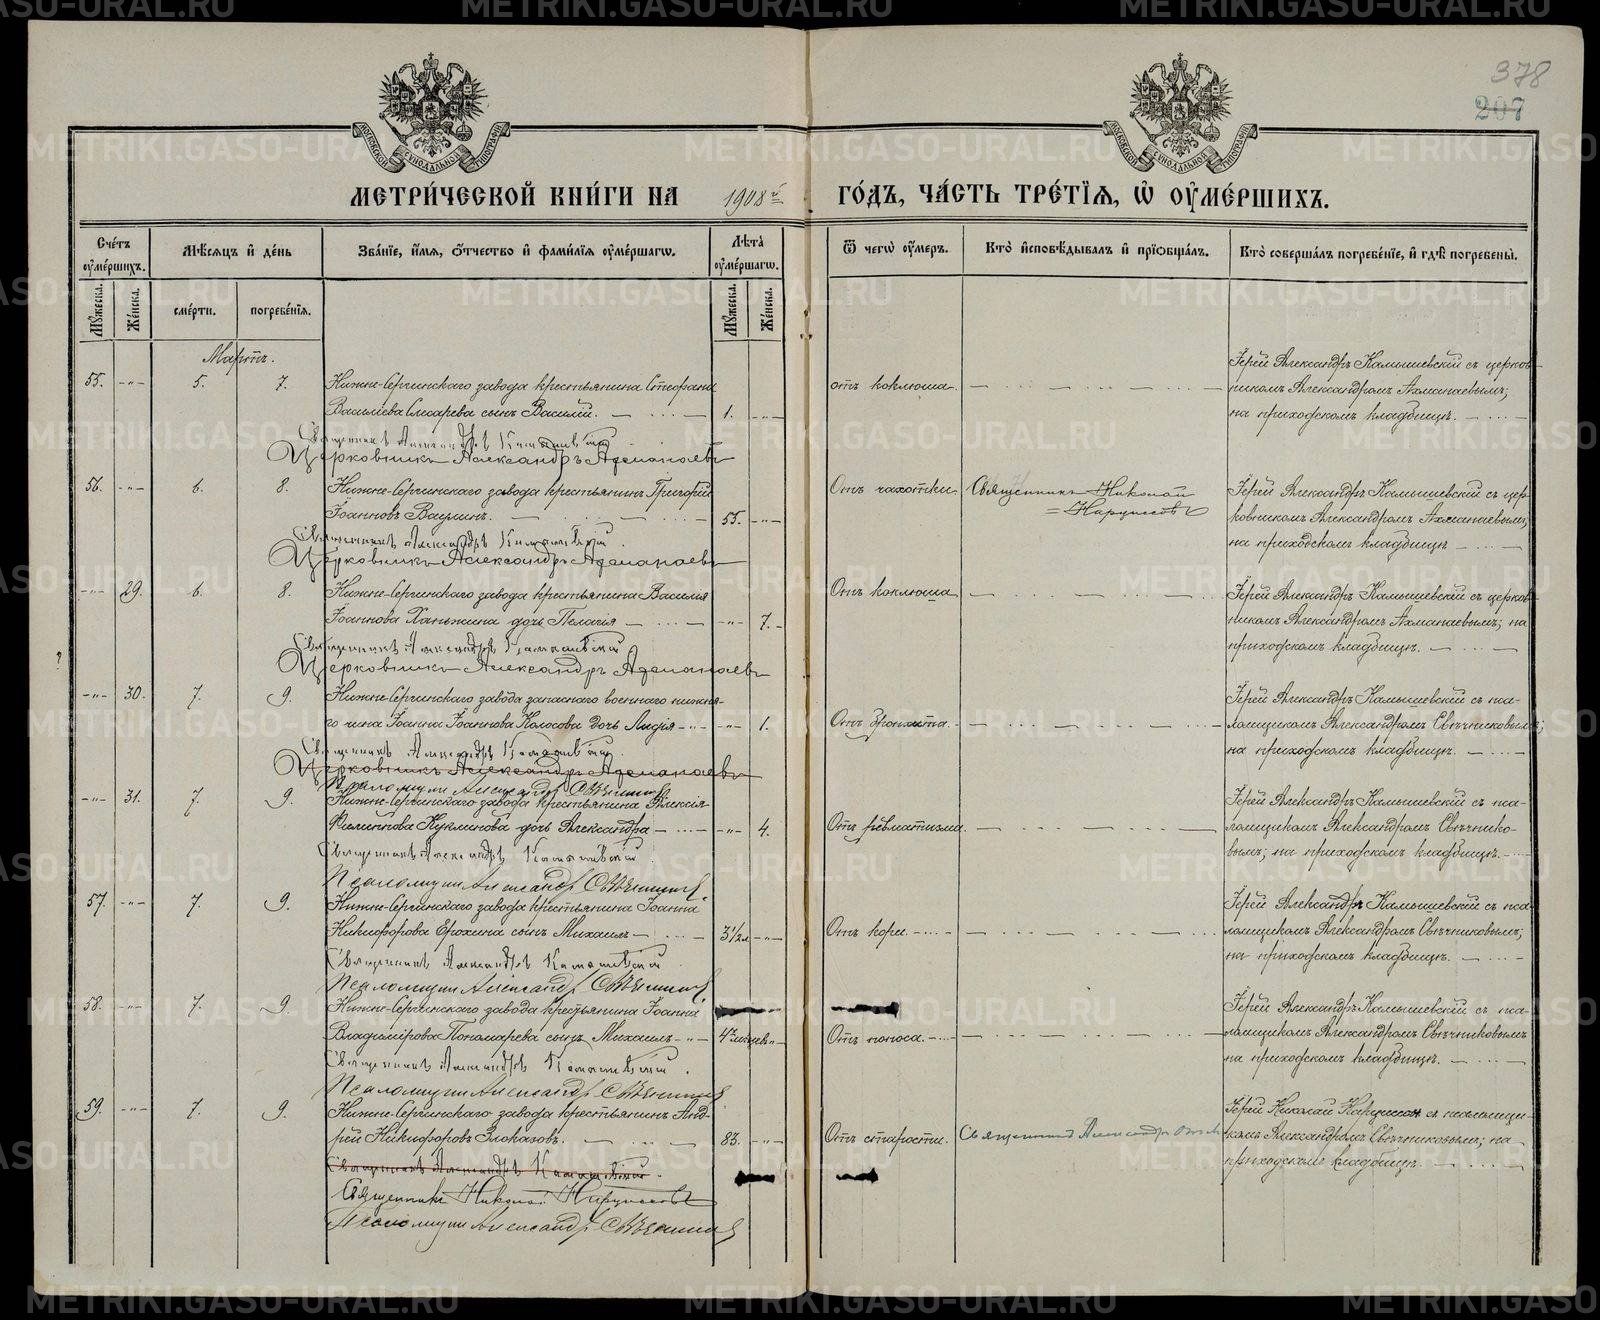 378
207
МОСКОВСКОЙ СѴНОДАЛЬНОЙ ТИПОГРАФІИ
МОСКОВСКОЙ СѴНОДАЛЬНОЙ ТИПОГРАФІИ
МЕТРИЧЕСКОЙ КНИГИ НА 1908й ГОДЪ, ЧАСТЬ ТРЕТІЯ, Ѡ ОУМЕРШИХЪ.
Счетъ оумершихъ.
Мѣсяцъ и день
Званіе, имя, отчество и фамилія оумершагѡ.
Лѣта оумершагѡ.
Ѿ чегѡ оумеръ.
Кто исповѣдывалъ и пріобщалъ.
Кто совершалъ погребеніе, и гдѣ погребены.
Мужеска.
Женска.
смерти.
погребенія.
Мужеска.
Женска.
Мартъ.
55. -"- 5. 7. Нижне-Сергинскаго завода крестьянина Стефана
Васильева Слесарева сынъ Василій. 1. -"-
отъ коклюша.
Іерей Александръ Камышевскій съ церков-
никомъ Александромъ Ахманаевымъ;
на приходскомъ кладбищѣ.
Священникъ Александръ Камышевскій
Церковникъ Александръ Ахманаевъ
56. -"- 6. 8. Нижне-Сергинскаго завода крестьянинъ Григорій
Іоанновъ Ваулинъ. 55. -"-
Отъ чахотки.
Священникъ Николай
Іерей Александръ Камышевскій съ цер-
ковникомъ Александромъ Ахманаевымъ;
на приходскомъ кладбищѣ
Священникъ Александръ Камышевскій.
Церковникъ Александръ Ахманаевъ
-"- 29. 6. 8. Нижне-Сергинскаго завода крестьянина Василія
Іоаннова Ханжина дочь Пелагія -"- 7.
Отъ коклюша
Іерей Александръ Камышевскій съ церков-
никомъ Александромъ Ахманаевымъ; на
приходскомъ кладбищѣ.
Священникъ Александръ Камышевскій
Церковникъ Александръ Ахманаевъ
-"- 30. 7. 9. Нижне-Сергинскаго завода запаснаго военнаго нижня-
го чина Іоанна Іоаннова Колосова дочь Лидія -"- 1.
Отъ бронхита.
Іерей Александръ Камышевскій съ пса-
ломщикомъ Александромъ Свѣчниковымъ;
на приходскомъ кладбищѣ.
Священникъ Александръ Камышевскій.
Церковникъ Александръ Ахманаевъ
Псаломщикъ Александръ Свѣчниковъ
-"- 31. 7. 9. Нижне-Сергинскаго завода крестьянина Алексія
Филиппова Куклинова дочь Александра -"- 4.
Отъ ревматизма.
Іерей Александръ Камышевскій съ пса-
ломщикомъ Александромъ Свѣчнико-
вымъ; на приходскомъ кладбищѣ.
Священникъ Александръ Камышевскій.
Псаломщикъ Александръ Свѣчниковъ.
57. -"- 7. 9. Нижне-Сергинскаго завода крестьянина Іоанна
Никифорова Ерохина сынъ Михаилъ 3½ л -"-
Отъ кори.
Іерей Александръ Камышевскій съ пса-
ломщикомъ Александромъ Свѣчниковымъ;
на приходскомъ кладбищѣ.
Священникъ Александръ Камышевскій.
Псаломщикъ Александръ Свѣчниковъ.
58. -"- 7. 9. Нижне-Сергинскаго завода крестьянина Іоанна
Владимірова Пономарева сынъ Михаилъ 4 мѣсцевъ -"-
Отъ поноса.
Іерей Александръ Камышевскій съ пса-
ломщикомъ Александромъ Свѣчниковымъ
на приходскомъ кладбищѣ.
Священникъ Александръ Камышевскій.
Псаломщикъ Александръ Свѣчниковъ
59. -"- 7. 9. Нижне-Сергинскаго завода крестьянинъ Анд-
рей Никифоровъ Злоказовъ. 83. -"-
Отъ старости.
Священникъ Александръ
Іерей Николай съ псаломщи-
комъ Александромъ Свѣчниковымъ; на
приходскомъ кладбищѣ.
Священникъ Александръ Камышевскій.
Священникъ Николай
Псаломщикъ Александръ Свѣчниковъ
METRIKI.GASO-URAL.RU